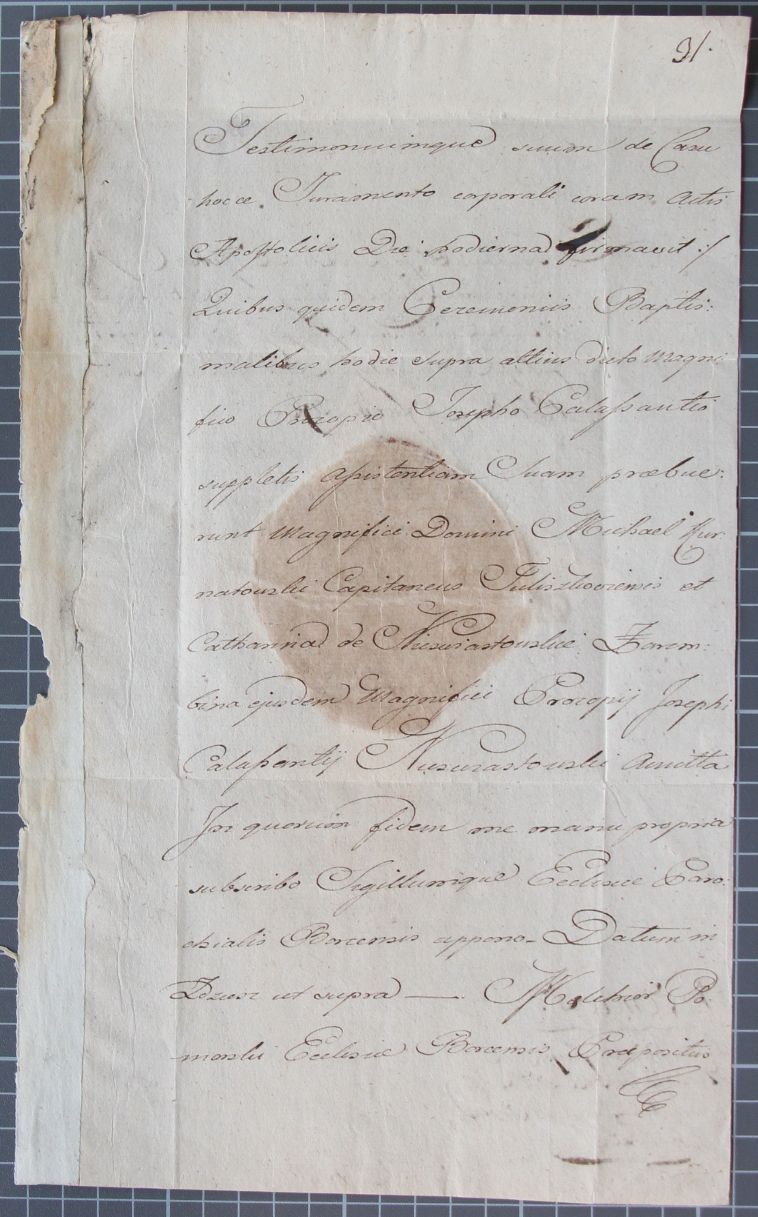 91.
Testimoniumque suum de Casu
hocce Juramento corporali coram Actis
Apostolicis Die hodierna firmavit :/
Quibus quidem Ceremoniis Baptis:
malibus hodie supra altius dicto Magni
fico Procopio Josepho Calassantio
suppletis assistentiam Suam præbue:
runt Magnifici Domini Michael Kur
natowski Capitaneus et
Catharina de Nieswiastowskie Zarem:
bina ejusdem Magnifici Procopij Josephi
Calassantij Nieswiastowski Amitta
In quorum fidem me manu propria
subscribo Sigillumque Ecclesiæ Paro:
chialis Borcensis appono. Datum in
ut supra — Melchior Po:
morski Ecclesiæ Borcensis Præpositus